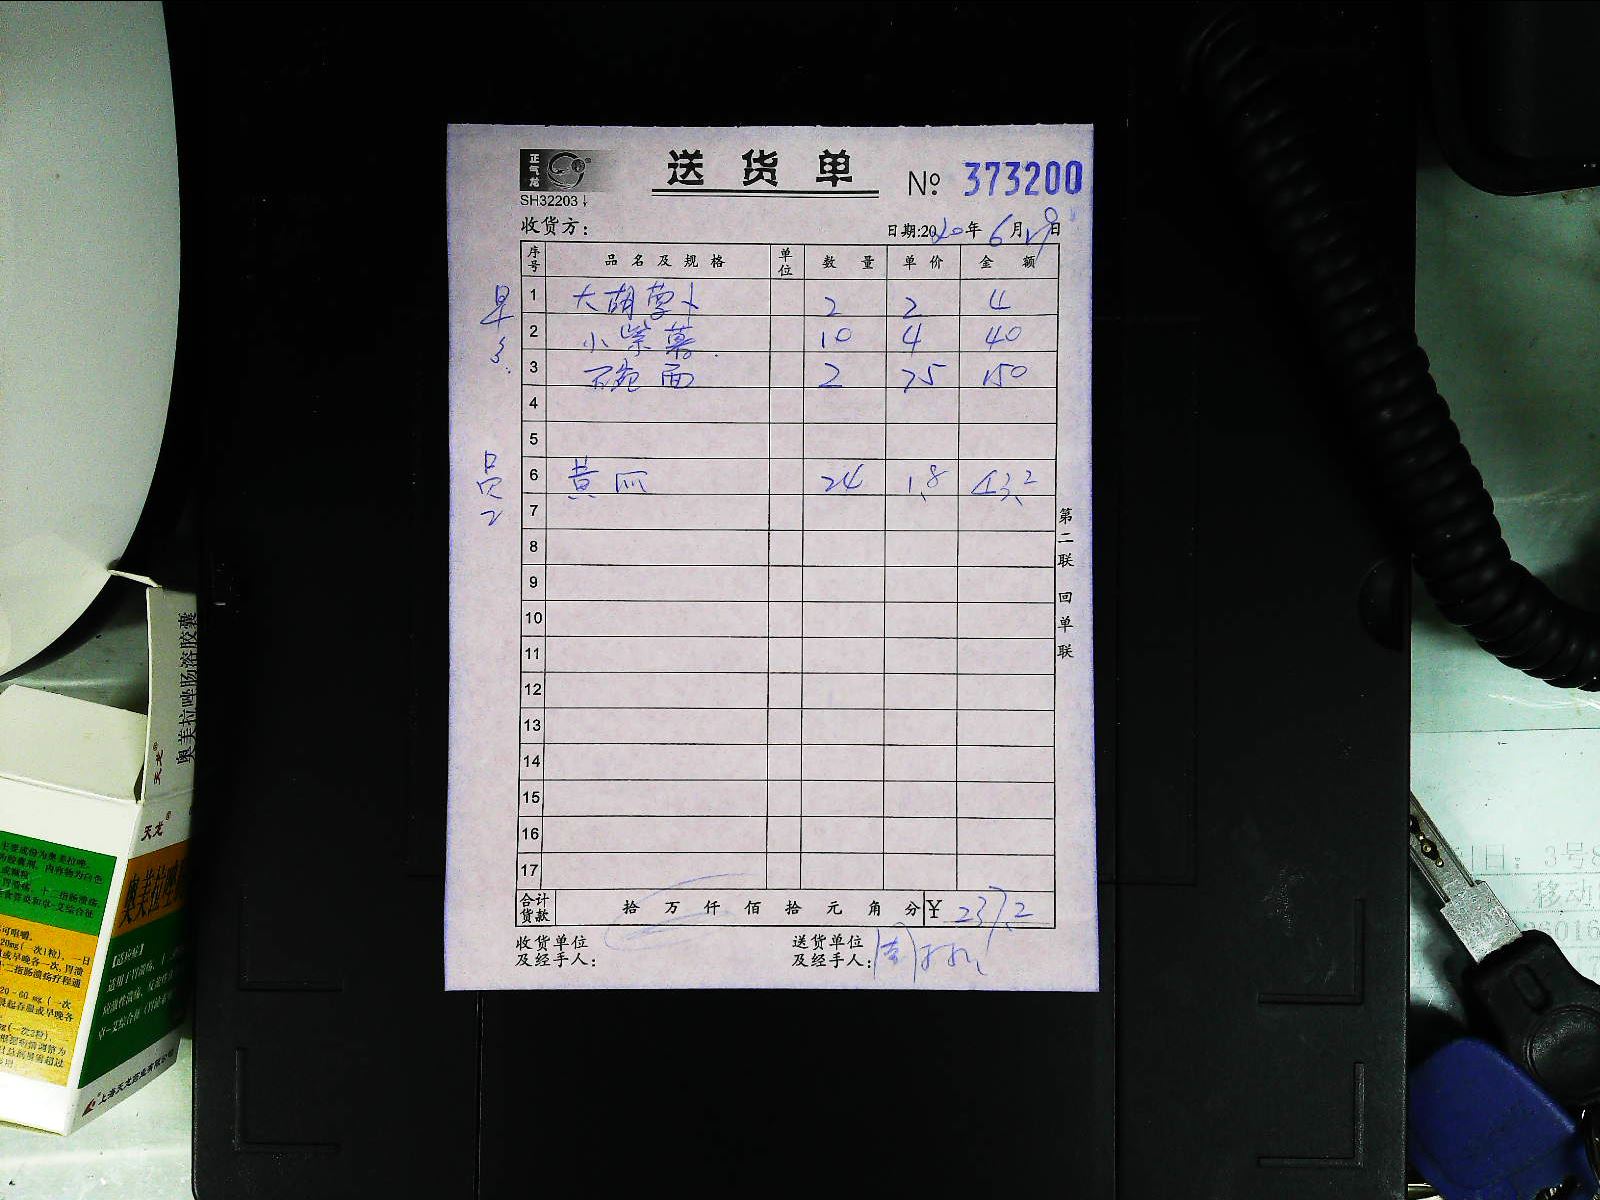 正气龙
SH32203↓
送货单
№ 373200
收货方：
日期:2020年6月29日
序号 品名及规格 单位 数量 单价 金额
早
1 大胡萝卜 2 2 4
2 小紫薯 10 4 40
3 碗面 2 75 150
4
5
员2
6 黄瓜 24 1.8 43.2
7
8
9
10
11
12
13
14
15
16
17
第二联 回单联
合计货款 拾万仟佰拾元角分 ¥ 237.2
收货单位及经手人：
送货单位及经手人：
奥美拉唑肠溶胶囊
天龙®
天龙®
奥美拉唑
【适应症】
上海天龙药业有限公司
移动